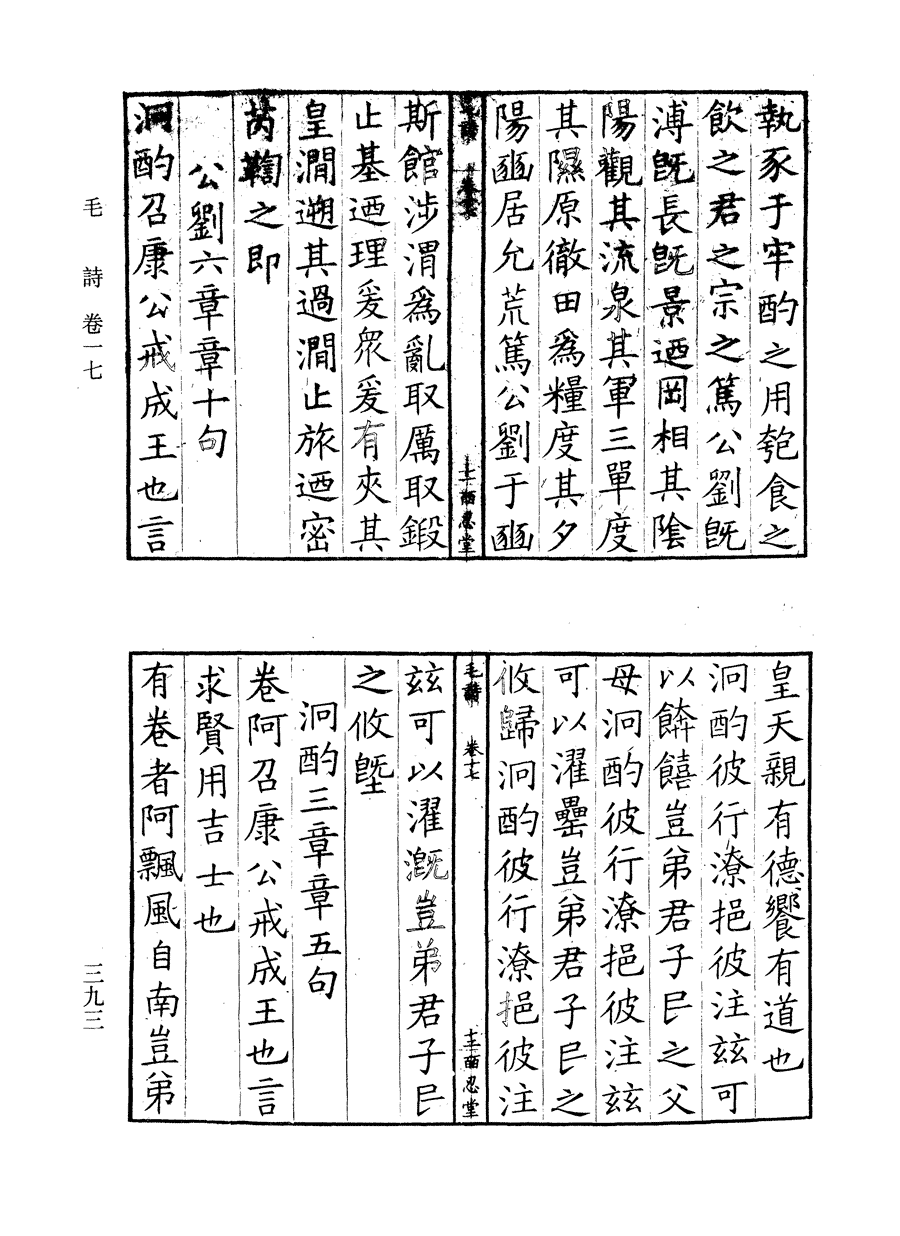 執豕于牢酌之用匏食之
飲之君之宗之篤公劉旣
溥旣長旣景迺岡相其陰
陽觀其流泉其軍三單度
其隰原徹田爲糧度其夕
陽豳居允荒篤公劉于豳
斯館涉渭爲亂取厲取鍛
止基迺理爰衆爰有夾其
皇澗遡其過澗止旅迺密
芮鞫之即
公劉六章章十句
泂酌召康公戒成王也言
皇天親有德饗有道也
泂酌彼行潦挹彼注玆可
以餴饎豈弟君子民之父
母泂酌彼行潦挹彼注玆
可以濯罍豈弟君子民之
攸歸泂酌彼行潦挹彼注
毛詩 卷十七 十三 皕忍堂
玆可以濯漑豈弟君子民
之攸墍
泂酌三章章五句
卷阿召康公戒成王也言
求賢用吉士也
有卷者阿飄風自南豈弟
毛詩 卷一七
三九三